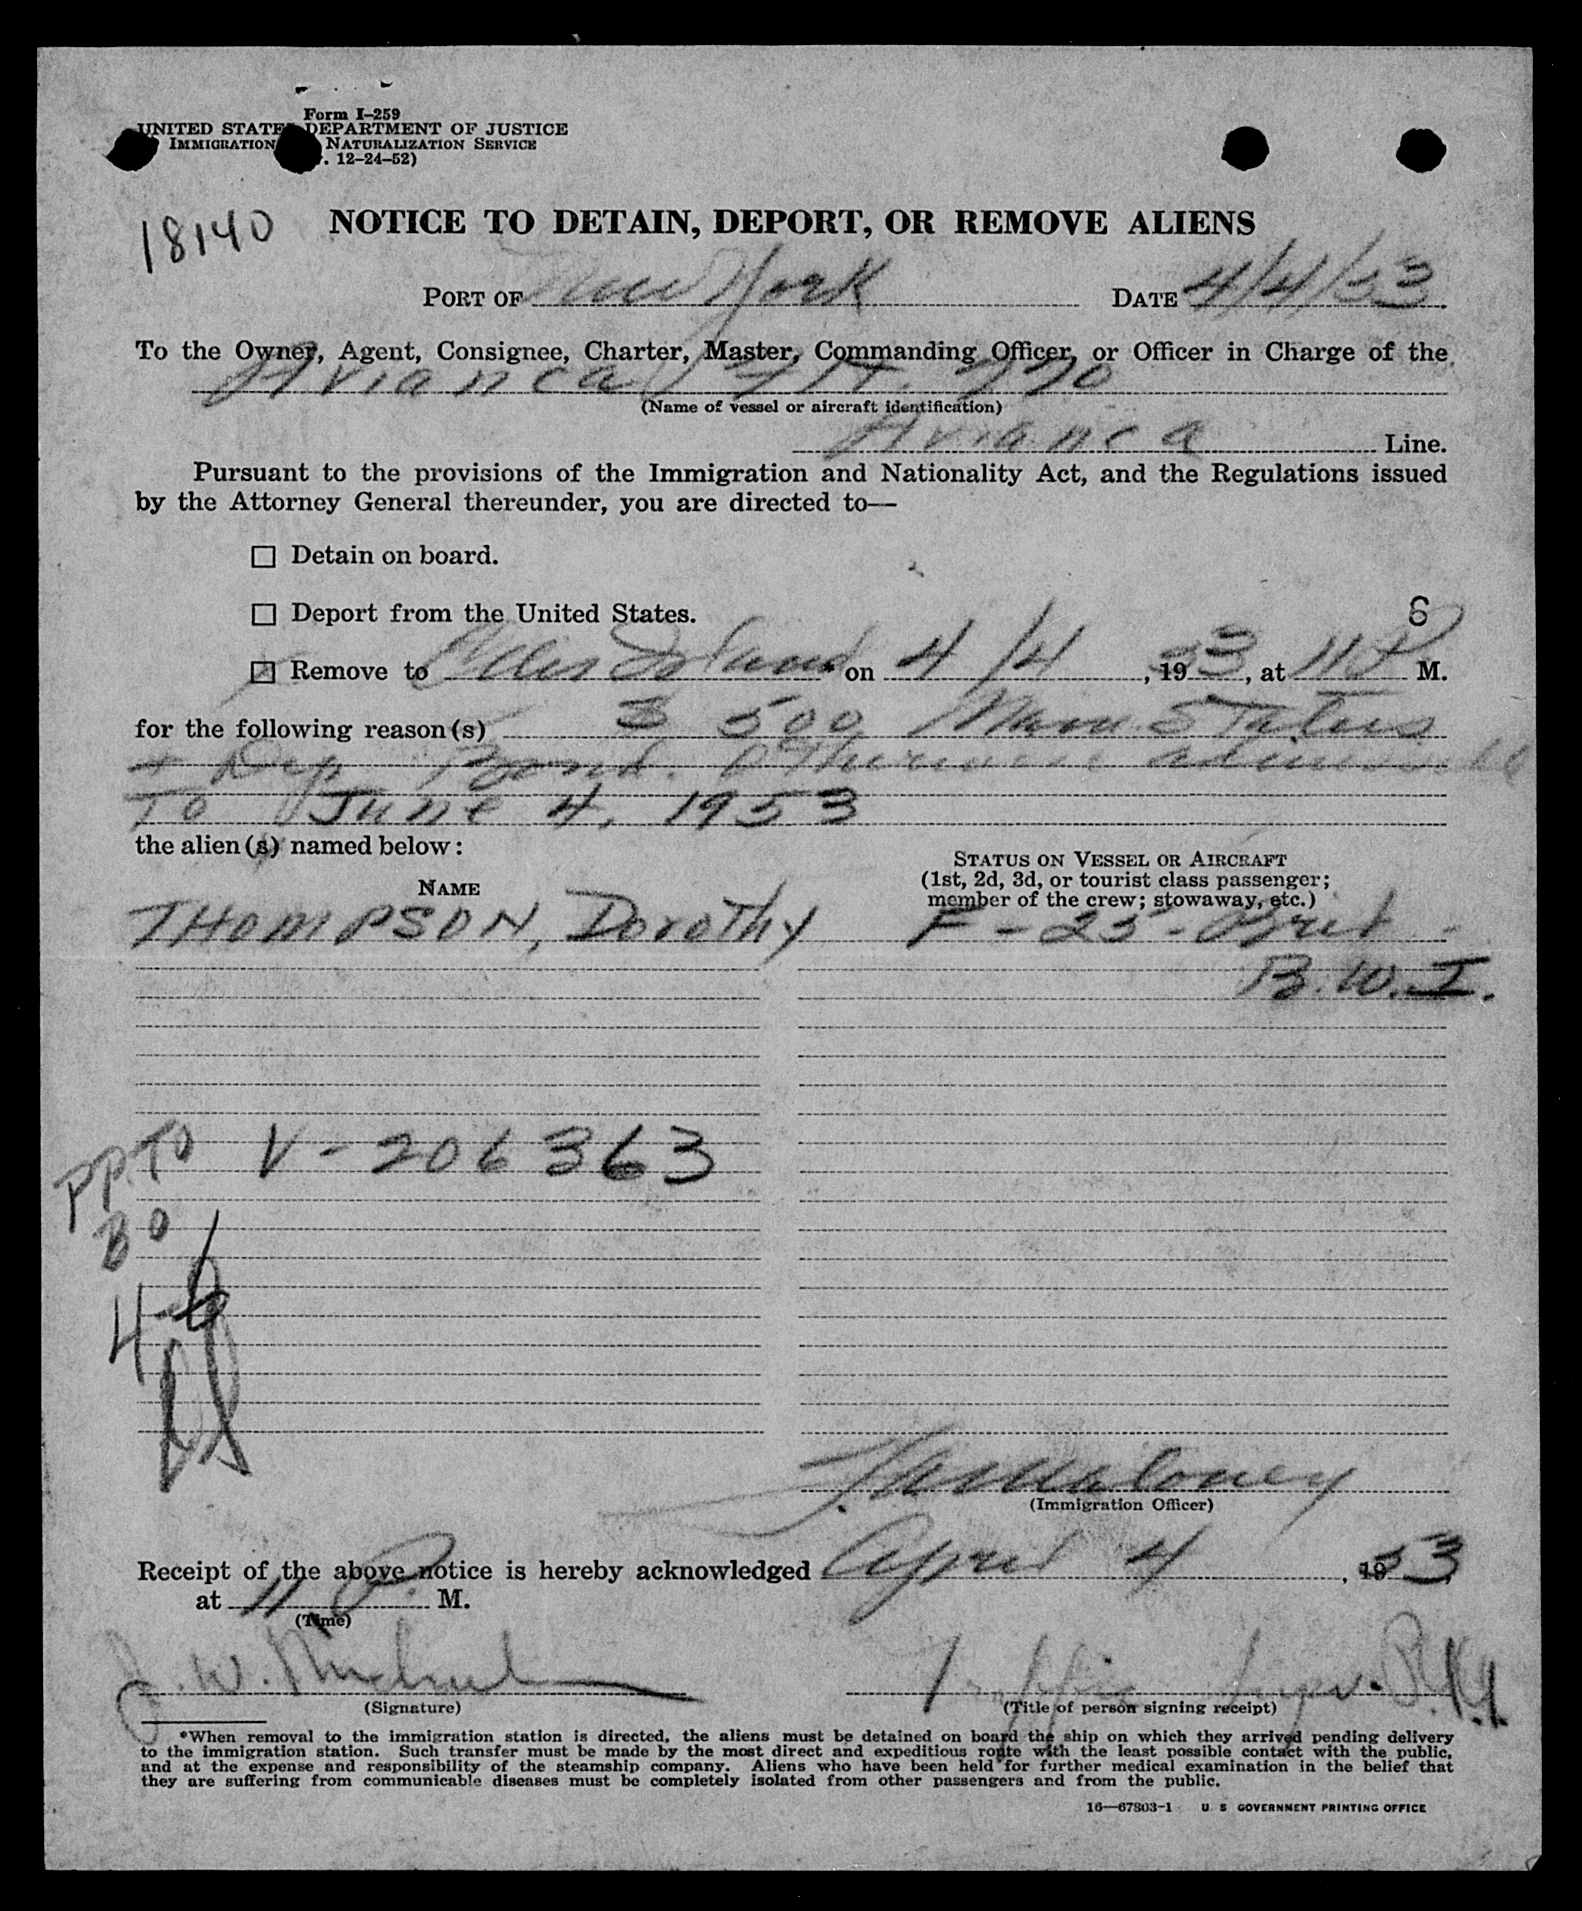 Form I-259
UNITED STATES DEPARTMENT OF JUSTICE
IMMIGRATION NATURALIZATION SERVICE
. 12-24-52)
18140
NOTICE TO DETAIN, DEPORT, OR REMOVE ALIENS
PORT OF New York DATE 4/4/53
To the Owner, Agent, Consignee, Charter, Master, Commanding Officer, or Officer in Charge of the
Avianca Flt. 770
(Name of vessel or aircraft identification)
Avianca Line.
Pursuant to the provisions of the Immigration and Nationality Act, and the Regulations issued
by the Attorney General thereunder, you are directed to—
☐ Detain on board.
☐ Deport from the United States.
6
☒ Remove to Ellis Island * on 4/4, 1953, at 11 P M.
for the following reason(s) $ 500 Main. Status
+ Dep Bond. Otherwise admissible
To June 4, 1953
the alien(s) named below:
STATUS ON VESSEL OR AIRCRAFT
(1st, 2d, 3d, or tourist class passenger;
member of the crew; stowaway, etc.)
NAME
THOMPSON, Dorothy F - 25 - Brit -
B.W.I.
PP. TO V-206363
BO
4-6
(Immigration Officer)
Receipt of the above notice is hereby acknowledged April 4, 1953
at 11 P. M.
(Time)
J. W. Traffic
(Signature) (Title of person signing receipt)
*When removal to the immigration station is directed, the aliens must be detained on board the ship on which they arrived pending delivery
to the immigration station. Such transfer must be made by the most direct and expeditious route with the least possible contact with the public,
and at the expense and responsibility of the steamship company. Aliens who have been held for further medical examination in the belief that
they are suffering from communicable diseases must be completely isolated from other passengers and from the public.
16—67803-1 U. S GOVERNMENT PRINTING OFFICE